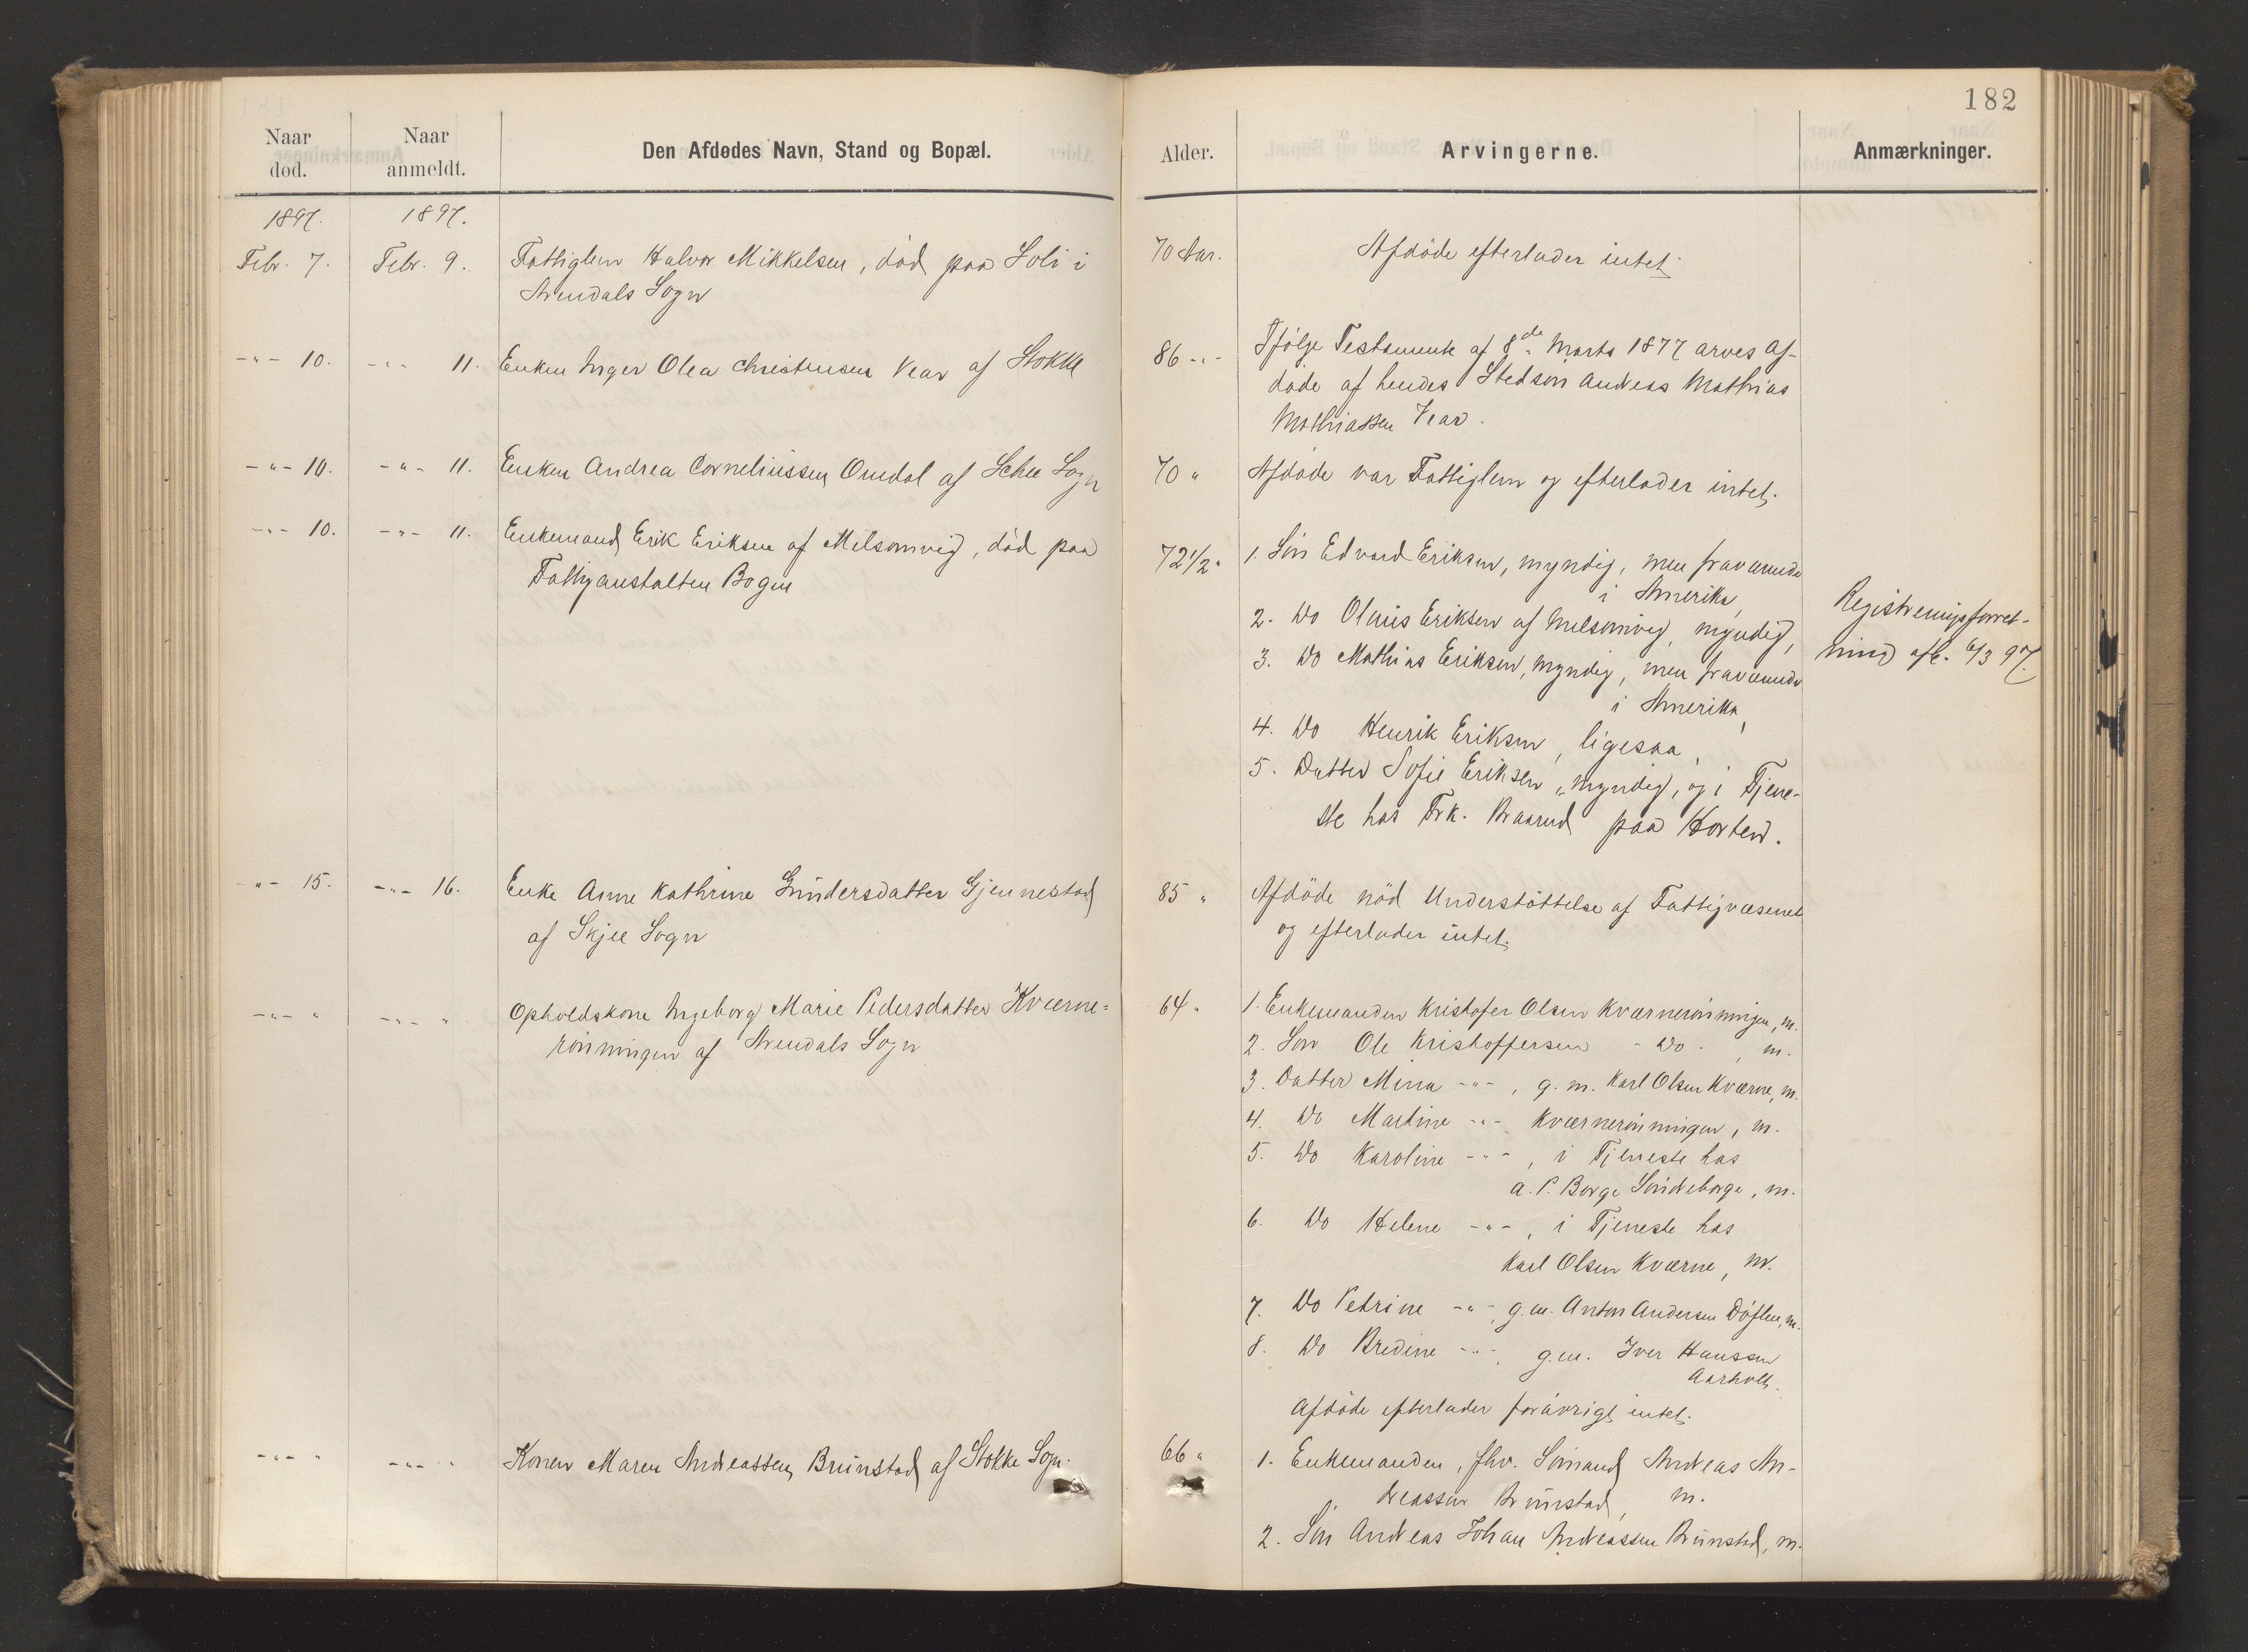 182
Naar død.
Naar anmeldt.
Den Afdødes Navn, Stand og Bopæl.
Alder.
Arvingerne.
Anmærkninger.
1897.
1897.
Febr. 7.
Febr. 9.
Fattiglem Halvor Mikkelsen, død paa Soli i
Arendals Sogn
70 Aar.
Afdøde efterlader intet.
-"- 10.
-"- 11.
Enken Inger Olea Christensen Vear af Stokke
86 -"-
Ifølge Testamente af 8de Marts 1877 arves Af-
døde af hendes Stedsøn Andreas Mathias
Mathiassen Vear.
-"- 10.
-"- 11.
Enken Andrea Corneliussen Omdal af Schee Sogn
70 "
Afdøde var Fattiglem og efterlader intet.
-"- 10.
-"- 11.
Enkemand Erik Eriksen af Melsomvig, død paa
Fattiganstalten Bogen
72 1/2 "
1. Søn Edvard Eriksen, myndig, men fraværende
i Amerika,
2. Do Olaus Eriksen af Melsomvig, myndig,
3. Do Mathias Eriksen, myndig, men fraværende
i Amerika,
4. Do Henrik Eriksen, ligesaa,
5. Datter Sofie Eriksen, myndig, og i Tjene-
ste hos Frk. Braarud paa Horten.
Registreringsforret-
ning afh. 6/3 97.
-"- 15.
-"- 16.
Enke Anne Kathrine Gundersdatter Gjennestad
af Skjee Sogn
85 "
Afdøde nød Understøttelse af Fattigvæsenet
og efterlader intet.
-"- "
-"- "
Opholdskone Ingeborg Marie Pedersdatter Kværne=
rønningen af Arendals Sogn
64 "
1. Enkemanden Kristofer Olsen Kværnerønningen, m.
2. Søn Ole Kristoffersen - Do - , m.
3. Datter Mina -"-, g. m. Karl Olsen Kværne, m.
4. Do Martine -"- Kværnerønningen, m.
5. Do Karoline -"-, i Tjeneste hos
A. P. Borge Søndreborge, m.
6. Do Helene -"-, i Tjeneste hos
Karl Olsen Kværne, m.
7. Do Petrine -"-, g.m. Anton Andersen Døflen, m.
8. Do Bredine -"-, g.m. Iver Hanssen
Aarholt.
Afdøde efterlader forøvrigt intet.
-"- "
-"- "
Konen Maren Andreassen Brunstad af Stokke Sogn.
66 "
1. Enkemanden, fhv. Sømand Andreas An-
dreassen Brunstad, m.
2. Søn Andreas Johan Andreassen Brunstad, m.